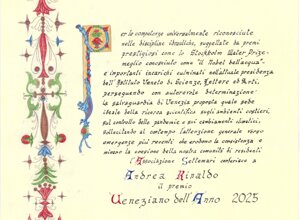 Per le competenze universalmente riconosciute
nelle discipline idrauliche, suggellate da premi
prestigiosi come lo Stockholm Water Prize-
meglio conosciuto come il "Nobel dell'acqua"
e importanti incarichi culminati nell'attuale presidenza
dell'Istituto Veneto di Scienze, Lettere ed Arti;
perseguendo con autorevole determinazione
la salvaguardia di Venezia proposta quale sede
ideale della ricerca scientifica sugli ambienti costieri,
sul controllo delle pandemie e sui cambiamenti climatici,
sollecitando al contempo l'attenzione generale verso
emergenze più presenti che erodono la consistenza e
minano la coesione della nostra comunità di residenti
l'Associazione Settemari conferisce a
Andrea Rinaldo
il premio
Veneziano dell'Anno 2025